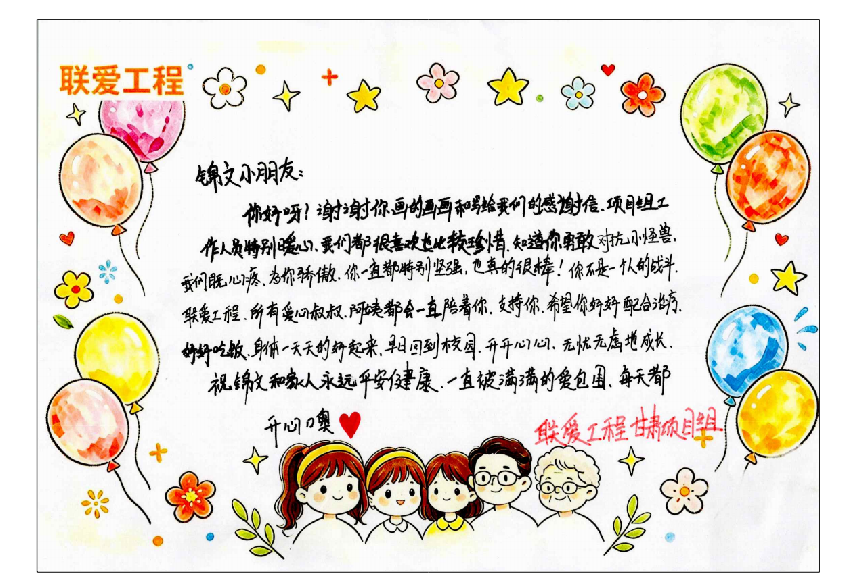 联爱工程
锦文小朋友：
你好呀！谢谢你画的画画和写给我们的感谢信、项目组工
作人员特别暖心、我们都很喜欢也比较珍惜、知道你勇敢对抗小怪兽，
我们既心疼、为你骄傲、你一直都特别坚强，也真的很棒！你不是一个人的战斗.
联爱工程、所有爱心叔叔、阿姨都会一直陪着你、支持你、希望你好好配合治疗、
好好吃饭、身体一天天的好起来、早日回到校园、开开心心、无忧无虑地成长.
祝锦文和家人永远平安健康、一直被满满的爱包围、每天都
开心噢
联爱工程甘肃项目组